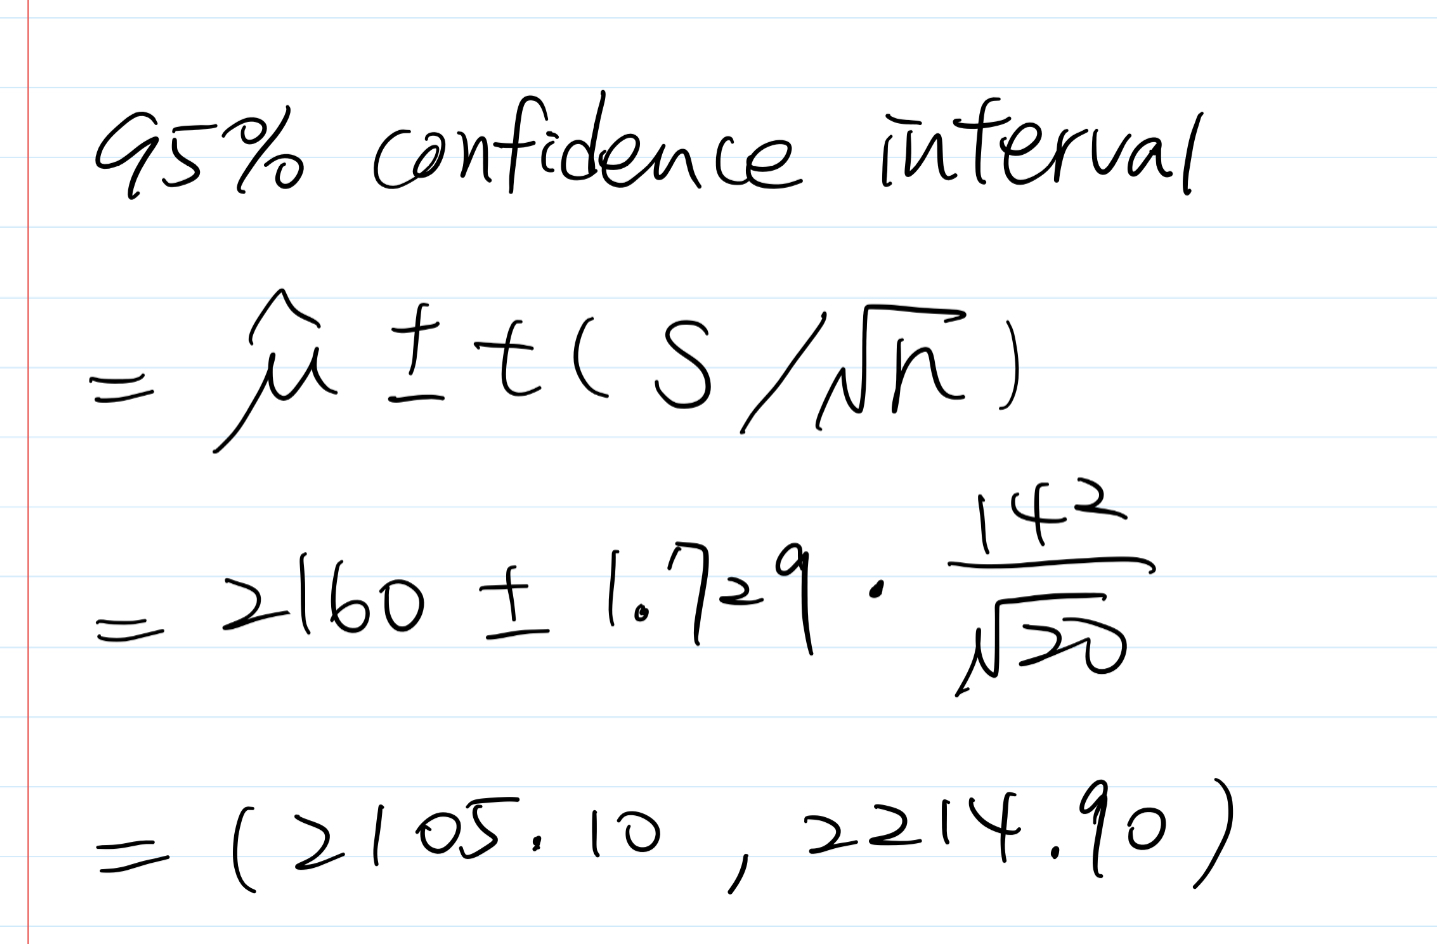 95% confidence interval
= μ̂ ± t(S/√n)
= 2160 ± 1.729 · 142/√20
= (2105.10, 2214.90)